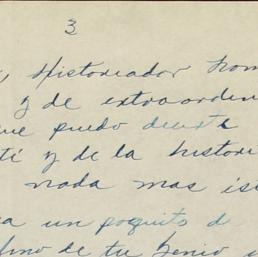 3
Historiador hom
y de extraordin
ue puedo decirte
ti y de la histori
nada mas is
a un poquito de
fino de tu genio